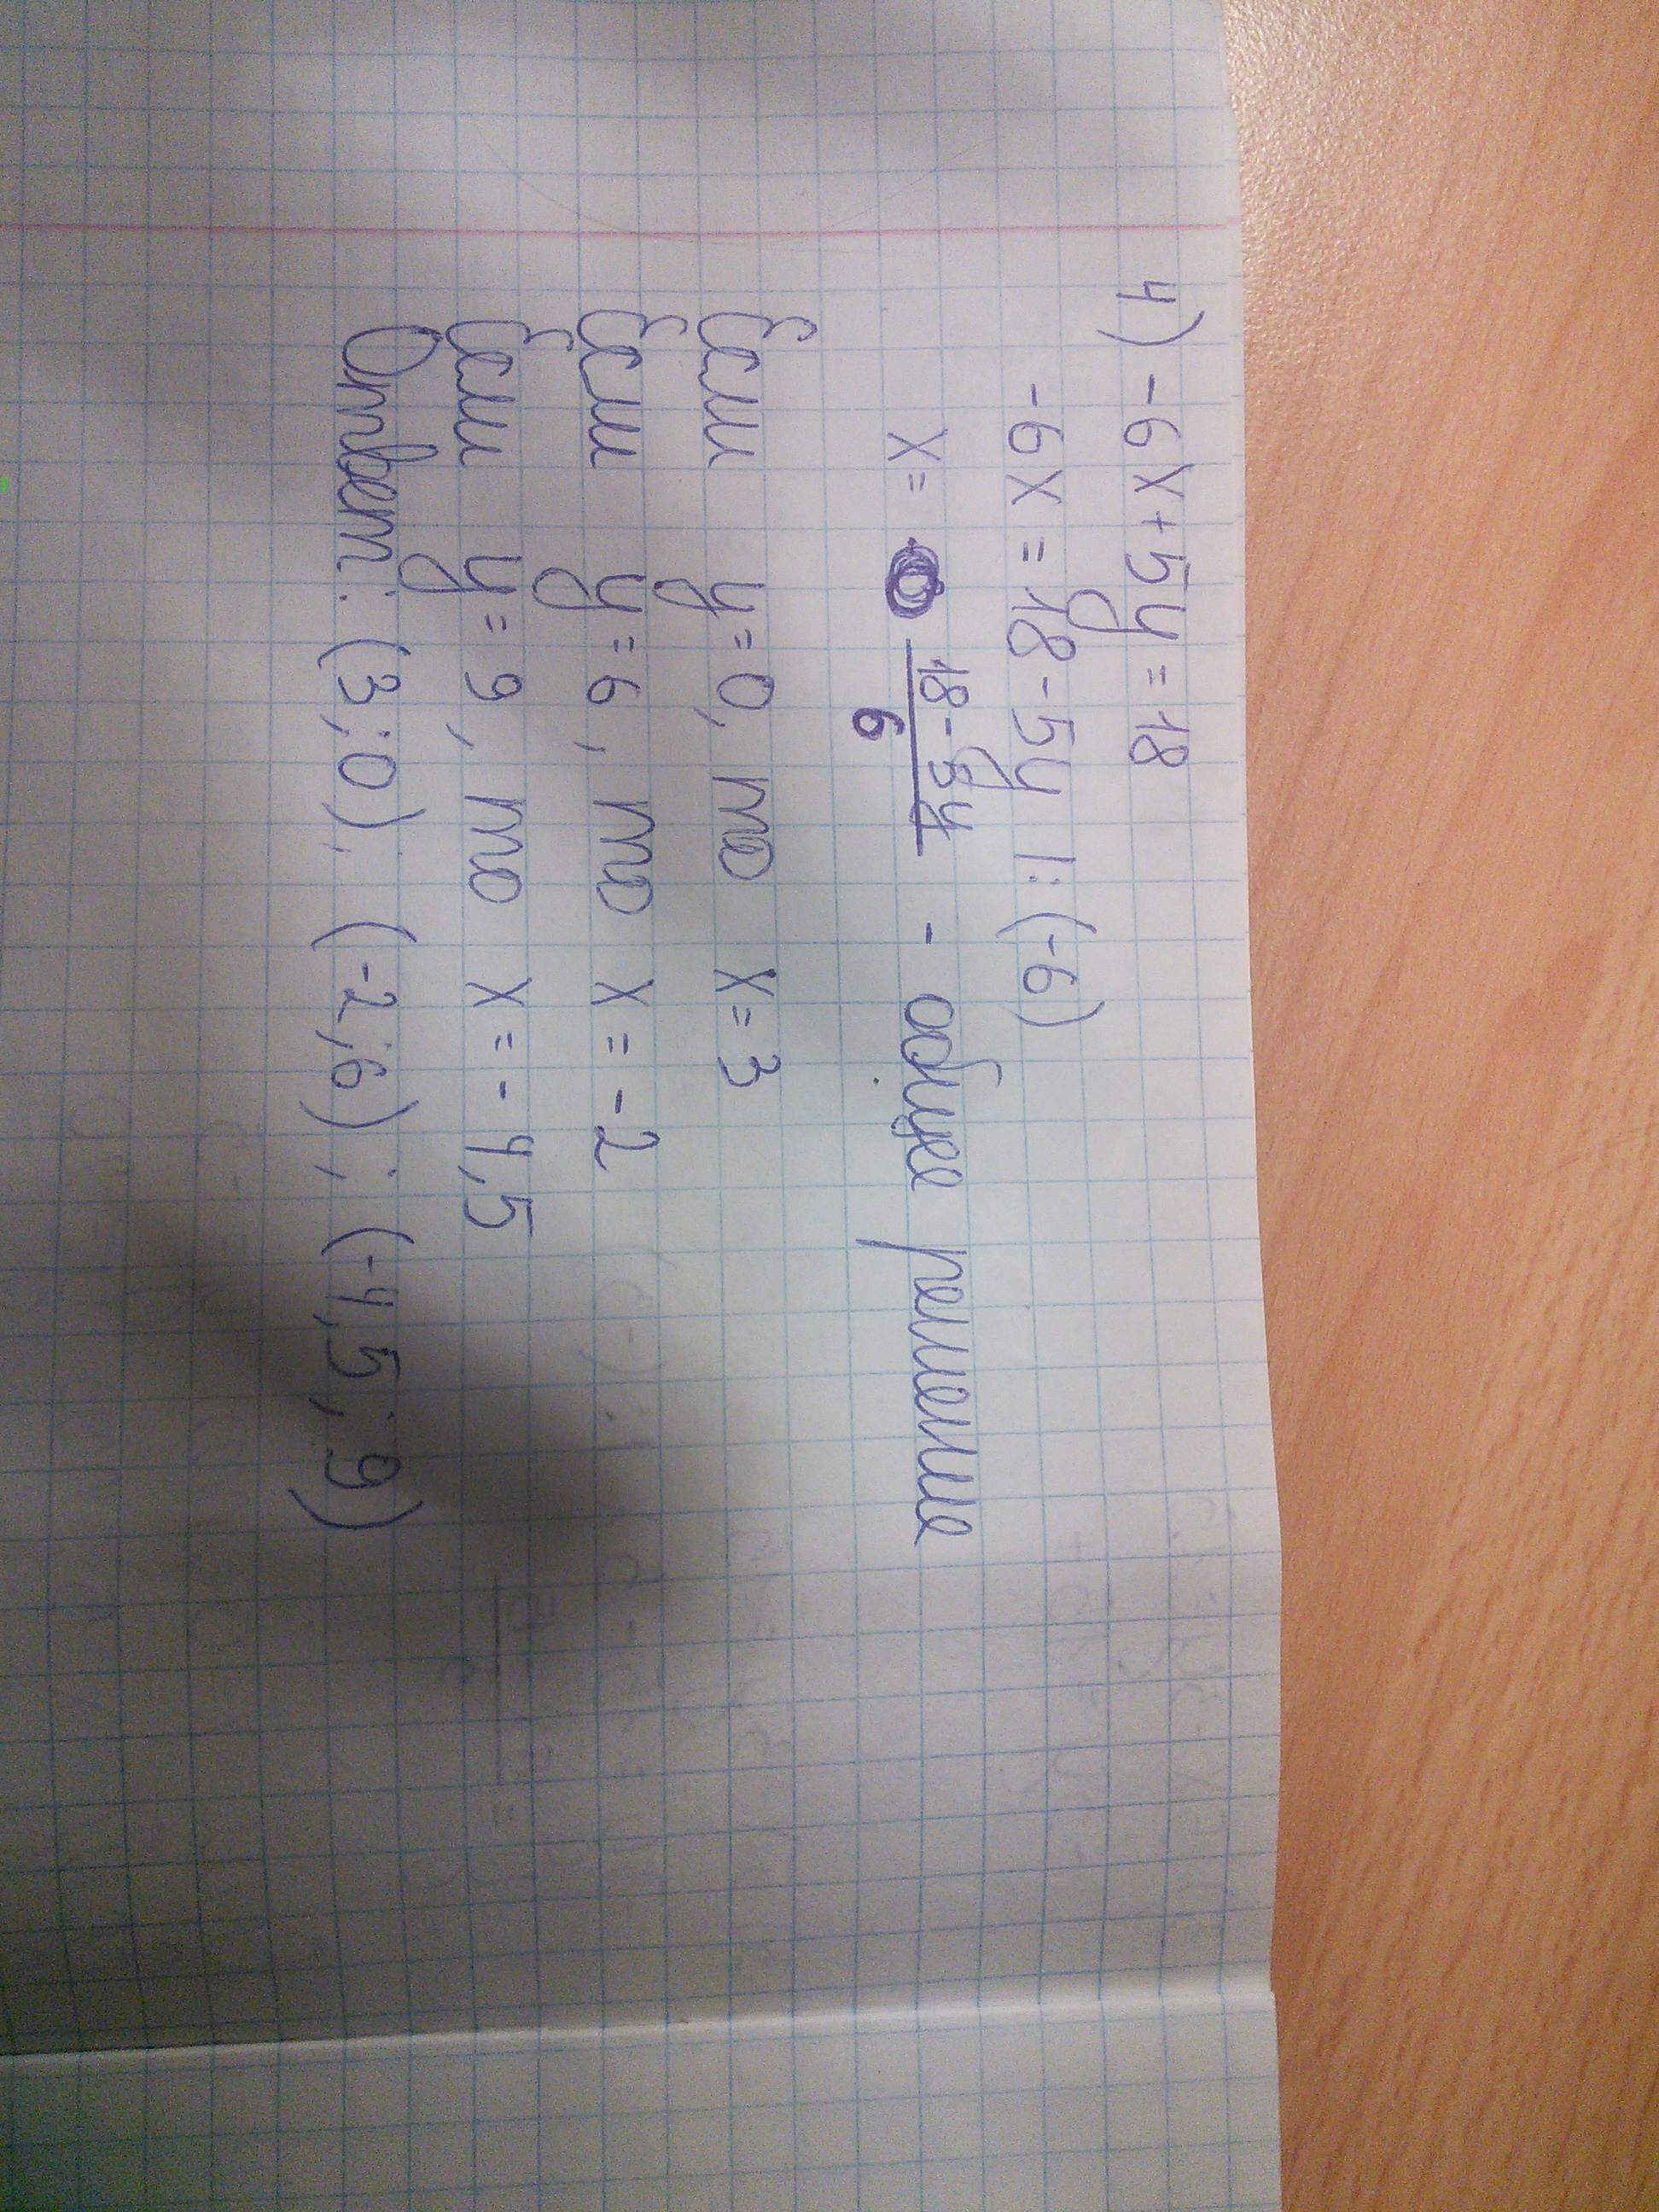 4) -6x+5y=18
-6x=18-5y |:(-6)
x= 18-5y/6 - общее решение
Если y=0, то x=3
Если y=6, то x=-2
Если y=9, то x=-4,5
Ответ: (3;0); (-2;6); (-4,5;9)